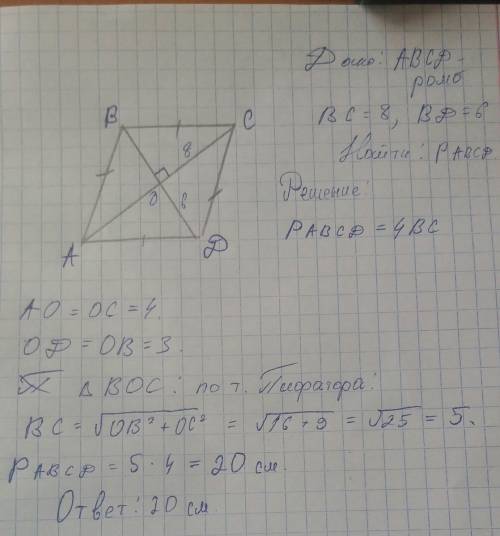 Дано: ABCD-
ромб
BC = 8, BD = 6
Найти: PABCD
Решение:
PABCD = 4BC
B
C
8
O
6
A
D
AO = OC = 4.
OD = OB = 3.
△BOC: по т. Пифагора:
BC = √OB² + OC² = √16 + 9 = √25 = 5.
PABCD = 5 · 4 = 20 см.
Ответ: 20 см